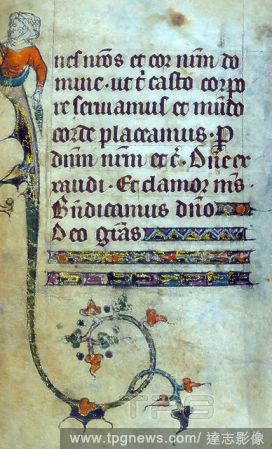 nes nr̃os et cor nr̃m do
mine · ut t̃ casto corpo
re seruiamus et mũdo
corde placeamus · P
dñm nr̃m et c̃ · Dñe ex
audi · Et clamor m̃s ·
Bñdicamus dño
Deo gr̃as
TPG
www.tpgnews.com/達志影像